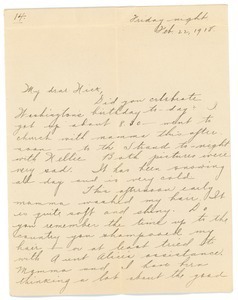 14.
Friday night
Feb. 22, 1918
My dear
Did you celebrate
Washingtons birthday to-day? I
got up about 8:00 - went to
church with mamma this after
noon - to the Strand to-night
with Nellie. Both pictures were
very sad. It has been snowing
all day and is very cold.
This afternoon early
mamma washed my hair. It
is quite soft and shiny. Do
you remember the time up to the
country you shampooed my
hair - or at least tried it
with Aunt assistance?
Mamma and I have been
thinking a lot about the good